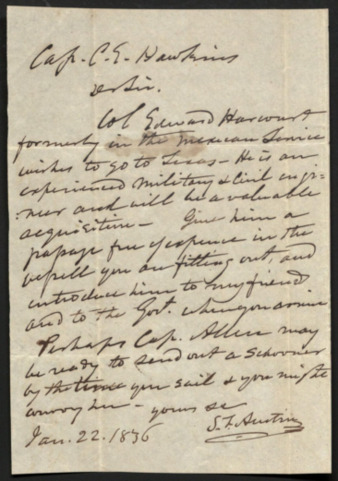 Cap. C. E. Hawkins
Dr Sir.
Col Edward Harcourt
formerly in the Mexican Service
wishes to go to Texas - He is an
experienced Military & Civil engi-
:neer and will be a valuable
acquisition - Give him a
passage free of expense in the
vessell you are fitting out, and
introduce him to my friends
and to the Govt. when you arrive
Perhaps Cap. Allen may
be ready to send out a Schooner
by the time you sail & you might
convoy her - yours &c
Jan. 22. 1836 S. F. Austin